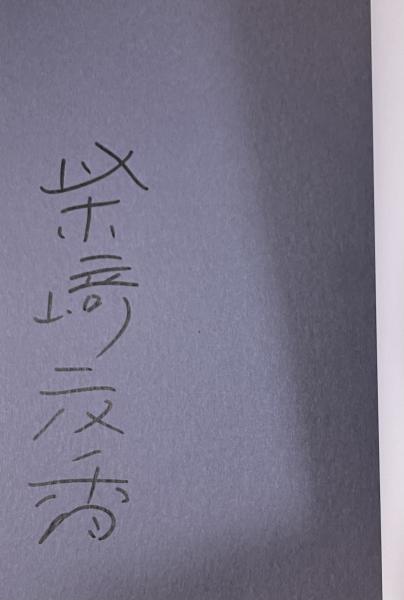 柴崎友香